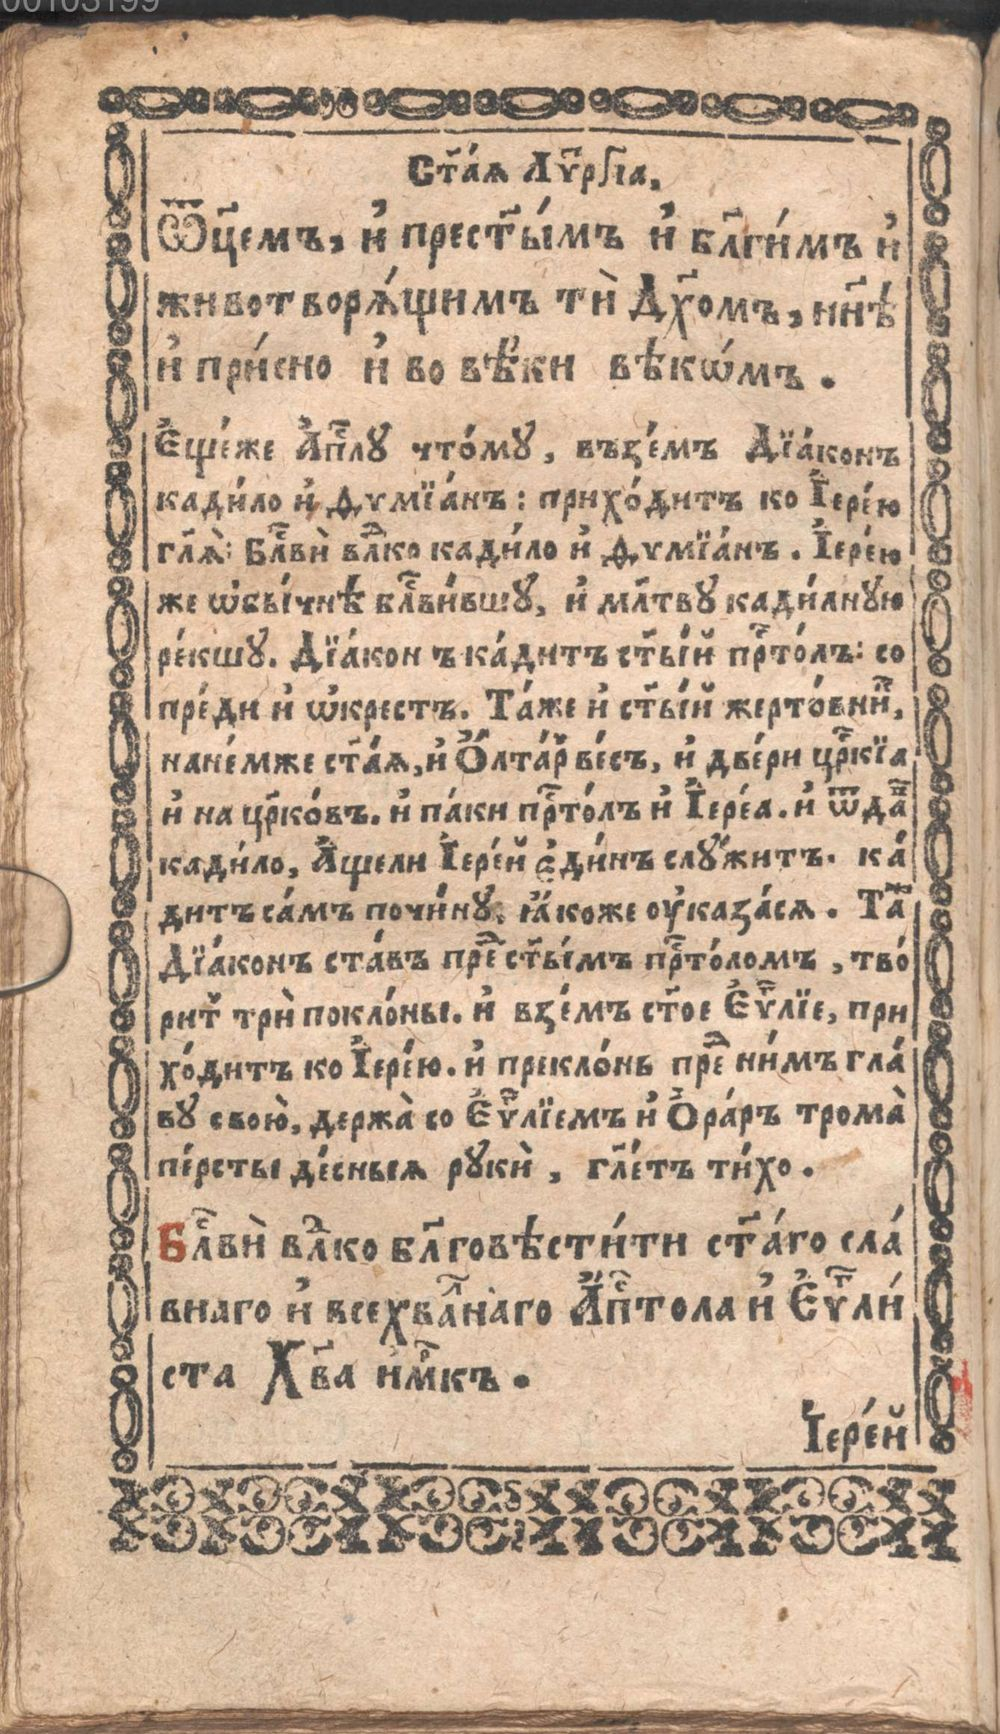 00103199
Ст҃а́ѧ Лѵ҃ргі́а,
Ѿц҃емъ, и҆ прест҃ы́мъ и҆ бл҃ги́мъ и҆
животворѧ́щимъ тѝ Дх҃омъ, нн҃ѣ
и҆ при́сно и҆ во вѣ́ки вѣкѡ́мъ .
Е҆ще́же А҆пⷭ҇лꙋ что́мꙋ , възе́мъ Дїа́конъ
кади́ло и҆ ѳѵмїа́нъ : прихо́дитъ ко І҆ере́ю
гл҃ѧ̀: Бл҃вѝ влⷣко кади́ло и҆ ѳѵмїа́нъ . І҆ере́ю
же ѡ҆бы́чнѣ бл҃ви́вшꙋ, и҆ мл҃твꙋ кади́лнꙋю
ре́кшꙋ. Дїа́кон ъ ка́дитъ ст҃ы́й прⷭ҇то́лъ: со
пре́ди и҆ ѡ҆́крестъ. Та́же и҆ ст҃ы́й жерто́вниⷦ,
нане́мже ст҃а́ѧ, и҆ Ѻ҆лта́рⸯ ве́сь, и҆ две́ри црⷪ҇кїа
и҆ на црⷪ҇ко́въ. и҆ па́ки прⷭ҇то́лъ и҆ І҆ере́а. и҆ ѿдаⷭ҇
кади́ло, А҆́щели І҆ере́й є҆ди́нъ слꙋ́житъ. ка́
дитъ са́мъ почи́нꙋ, ꙗ҆́коже ѹ҆каза́сѧ . Таⷤ
Дїа́конъ ста́въ преⷣ ст҃ы́мъ прⷭ҇то́ломъ , тво́
ритⸯ трѝ покло́ны. и҆ взе́мъ ст҃ое Е҆ѵⷢ҇лїе, при
хо́дитъ ко І҆ере́ю. и҆ прекло́нь преⷣ ни́мъ гла́
вꙋ свою̀, держа̀ со Е҆ѵⷢ҇лїемъ и҆ Ѻ҆ра́ръ трома̀
пе́рсты де́сныѧ рꙋкѝ , гл҃етъ ти́хо .
Бл҃вѝ влⷣко бл҃говѣсти́ти ст҃а́го сла́
внаго и҆ всехва́лнаго А҆пⷭ҇тола и҆ Е҆ѵⷢ҇ли́
ста Хв҃а и҆мⷬ҇къ .
І҆ере́й